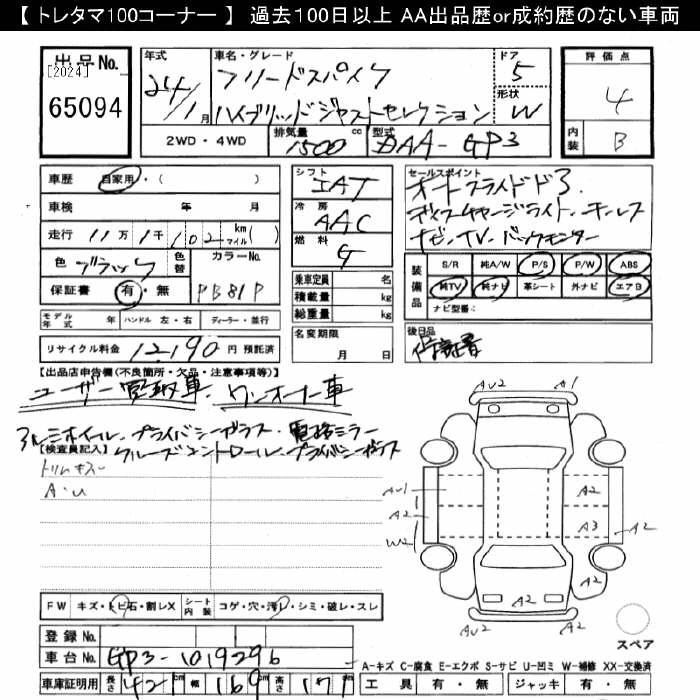 【 トレタマ100コーナー 】 過去100日以上 AA出品歴or成約歴のない車両
出品No.
[2024]
65094
年式
24/1月
車名・グレード
フリードスパイク
ハイブリッドジャストセレクション
ドア
5
形状
W
評価点
4
内装
B
2WD・4WD
排気量
1500 cc
型式
DAA-GP3
車歴 自家用・( )
車検 年 月
走行 11万1千102 km マイル( )
色 ブラック 色替 カラーNo.
保証書 有・無 PB81P
モデル年式 年 ハンドル 左・右 ディーラー・並行
リサイクル料金 12,190 円 預託済
シフト
IAT
冷房
AAC
燃料
G
乗車定員 名
積載量 kg
総重量 kg
名変期限
月 日
セールスポイント
オートスライドドア.
ディスチャージライト.キーレス
ナビ.TV.バックモニター
装備品 S/R 純A/W P/S P/W ABS
純TV 純ナビ 革シート 外ナビ エアB
ナビ型番:
後日品
保証書
【出品店申告欄(不良箇所・欠品・注意事項等)】
ユーザー買取車.ワンオーナー車
アルミホイル.プライバシーガラス.電格ミラー
【検査員記入】 クルーズコントロール.プライバシーガラス
トリムキズ
A・U
AU2 A1
AU1 A2
A2 A3 A2
W2
A2
A2
AU2 A2
スペア
FW キズ・トビ石・割レX シート内装 コゲ・穴・汚レ・シミ・破レ・スレ
登録No.
車台No. GP3-1019296
車庫証明用 長さ 421 cm 幅 169 cm 高さ 171 cm
A-キズ C-腐食 E-エクボ S-サビ U-凹ミ W-補修 XX-交換済
工具 有・無 ジャッキ 有・無